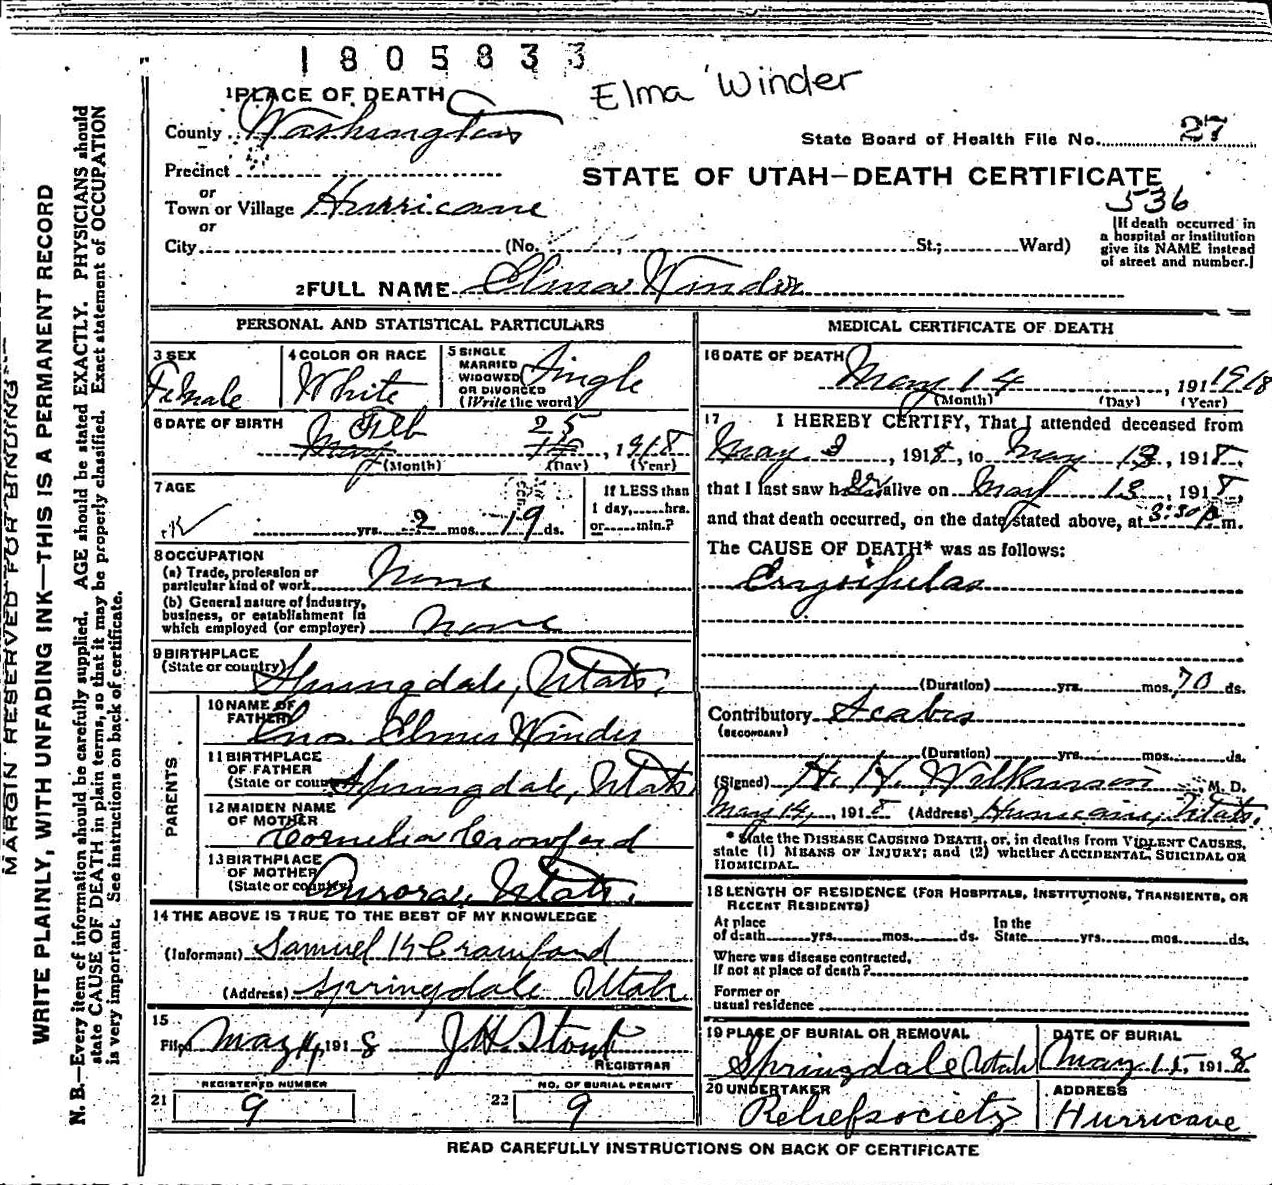 1805833
Elma Winder
1 PLACE OF DEATH
County Washington
State Board of Health File No. 27
Precinct
STATE OF UTAH—DEATH CERTIFICATE
or
536
Town or Village Hurricane
or
City (No. St.; Ward)
[If death occurred in
a hospital or institution
give its NAME instead
of street and number.]
2 FULL NAME Elma Winder
PERSONAL AND STATISTICAL PARTICULARS
3 SEX
Female
4 COLOR OR RACE
White
5 SINGLE
MARRIED
WIDOWED
OR DIVORCED
(Write the word)
Single
6 DATE OF BIRTH
Feb 25
May 14, 1918
(Month) (Day) (Year)
7 AGE
yrs. 2 mos. 19 ds.
If LESS than
1 day,......hrs.
or......min.?
8 OCCUPATION
(a) Trade, profession or
particular kind of work None
(b) General nature of industry,
business, or establishment in
which employed (or employer) None
9 BIRTHPLACE
(State or country)
Springdale, Utah.
PARENTS
10 NAME OF
FATHER
Jno. Elmer Winder
11 BIRTHPLACE
OF FATHER
(State or country) Springdale, Utah
12 MAIDEN NAME
OF MOTHER
Cornelia Crawford
13 BIRTHPLACE
OF MOTHER
(State or country) Aurora, Utah.
14 THE ABOVE IS TRUE TO THE BEST OF MY KNOWLEDGE
(Informant) Samuel K Crawford
(Address) Springdale Utah
15
Filed May 14, 1918 J.H. Stout
REGISTRAR
REGISTERED NUMBER
21 9
NO. OF BURIAL PERMIT
22 9
MEDICAL CERTIFICATE OF DEATH
16 DATE OF DEATH
May 14, 191 1918
(Month) (Day) (Year)
17 I HEREBY CERTIFY, That I attended deceased from
May 3, 1918, to May 13, 1918,
that I last saw her alive on May 13, 1918,
and that death occurred, on the date stated above, at 3:30 p m.
The CAUSE OF DEATH* was as follows:
Erysipelas
(Duration) yrs. mos. 10 ds.
Contributory Scabies
(SECONDARY)
(Duration) yrs. mos. ds.
(Signed) H. H. Wilkinson, M. D.
May 14, 1918 (Address) Hurricane, Utah.
* State the DISEASE CAUSING DEATH, or, in deaths from VIOLENT CAUSES,
state (1) MEANS OF INJURY; and (2) whether ACCIDENTAL, SUICIDAL OR
HOMICIDAL.
18 LENGTH OF RESIDENCE (FOR HOSPITALS, INSTITUTIONS, TRANSIENTS, OR
RECENT RESIDENTS)
At place In the
of death yrs. mos. ds. State yrs. mos. ds.
Where was disease contracted,
If not at place of death?
Former or
usual residence
19 PLACE OF BURIAL OR REMOVAL
Springdale Utah
DATE OF BURIAL
May 15, 1918
20 UNDERTAKER
Relief society
ADDRESS
Hurricane
READ CAREFULLY INSTRUCTIONS ON BACK OF CERTIFICATE
MARGIN RESERVED FOR BINDING
WRITE PLAINLY, WITH UNFADING INK—THIS IS A PERMANENT RECORD
N. B.—Every item of information should be carefully supplied. AGE should be stated EXACTLY. PHYSICIANS should
state CAUSE OF DEATH in plain terms, so that it may be properly classified. Exact statement of OCCUPATION
is very important. See instructions on back of certificate.